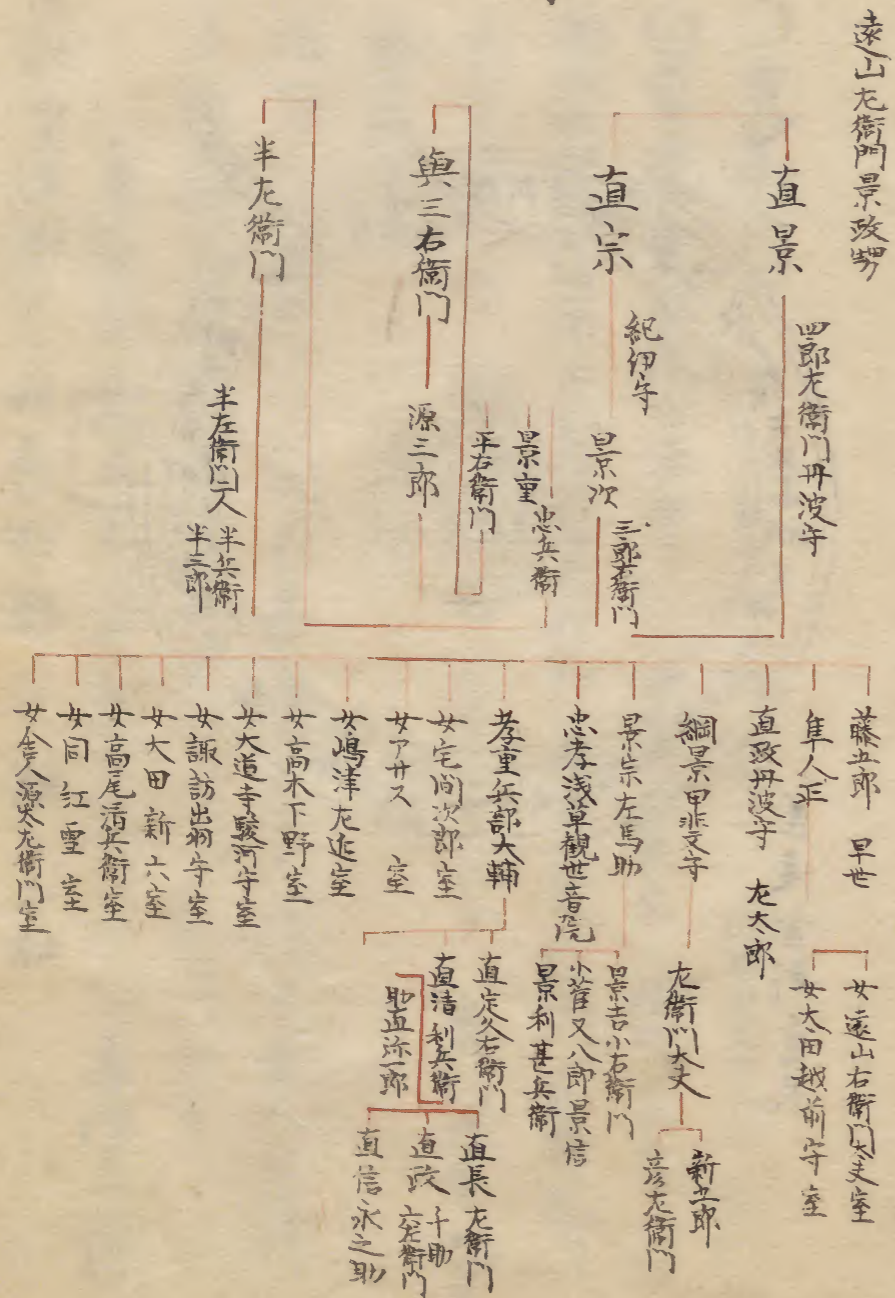 遠山左衛門景政甥
直景
四郎左衛門丹波守
直宗
紀伊守
景次
三郎右衛門
忠兵衛
景重
平右衛門
與三右衛門
源三郎
半左衛門
半左衛門二人
半兵衛
半三郎
藤五郎 早世
隼人正
女遠山右衛門大夫室
女大田越前守室
直政丹波守 左太郎
綱景甲斐守
左衛門大夫
新五郎
彦左衛門
景宗左馬助
景吉小右衛門
小菅又八郎景信
景利甚兵衛
忠孝浅草観世音院
孝重兵部大輔
直定久右衛門
直清利兵衛
助直弥一郎
直長左衛門
直政千助
六左衛門
直信永之助
女宅間次郎室
女アサス 室
女嶋津左近室
女高木下野室
女大道寺駿河守室
女諏訪出羽守室
女大田新六室
女高尾清兵衛室
女同紅雪室
女舎人源太左衛門室